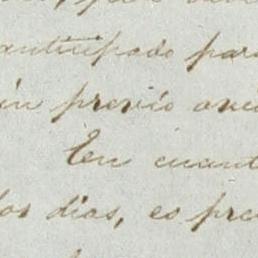 anticipado para
in previo avi
En cuant
los dias, es pre